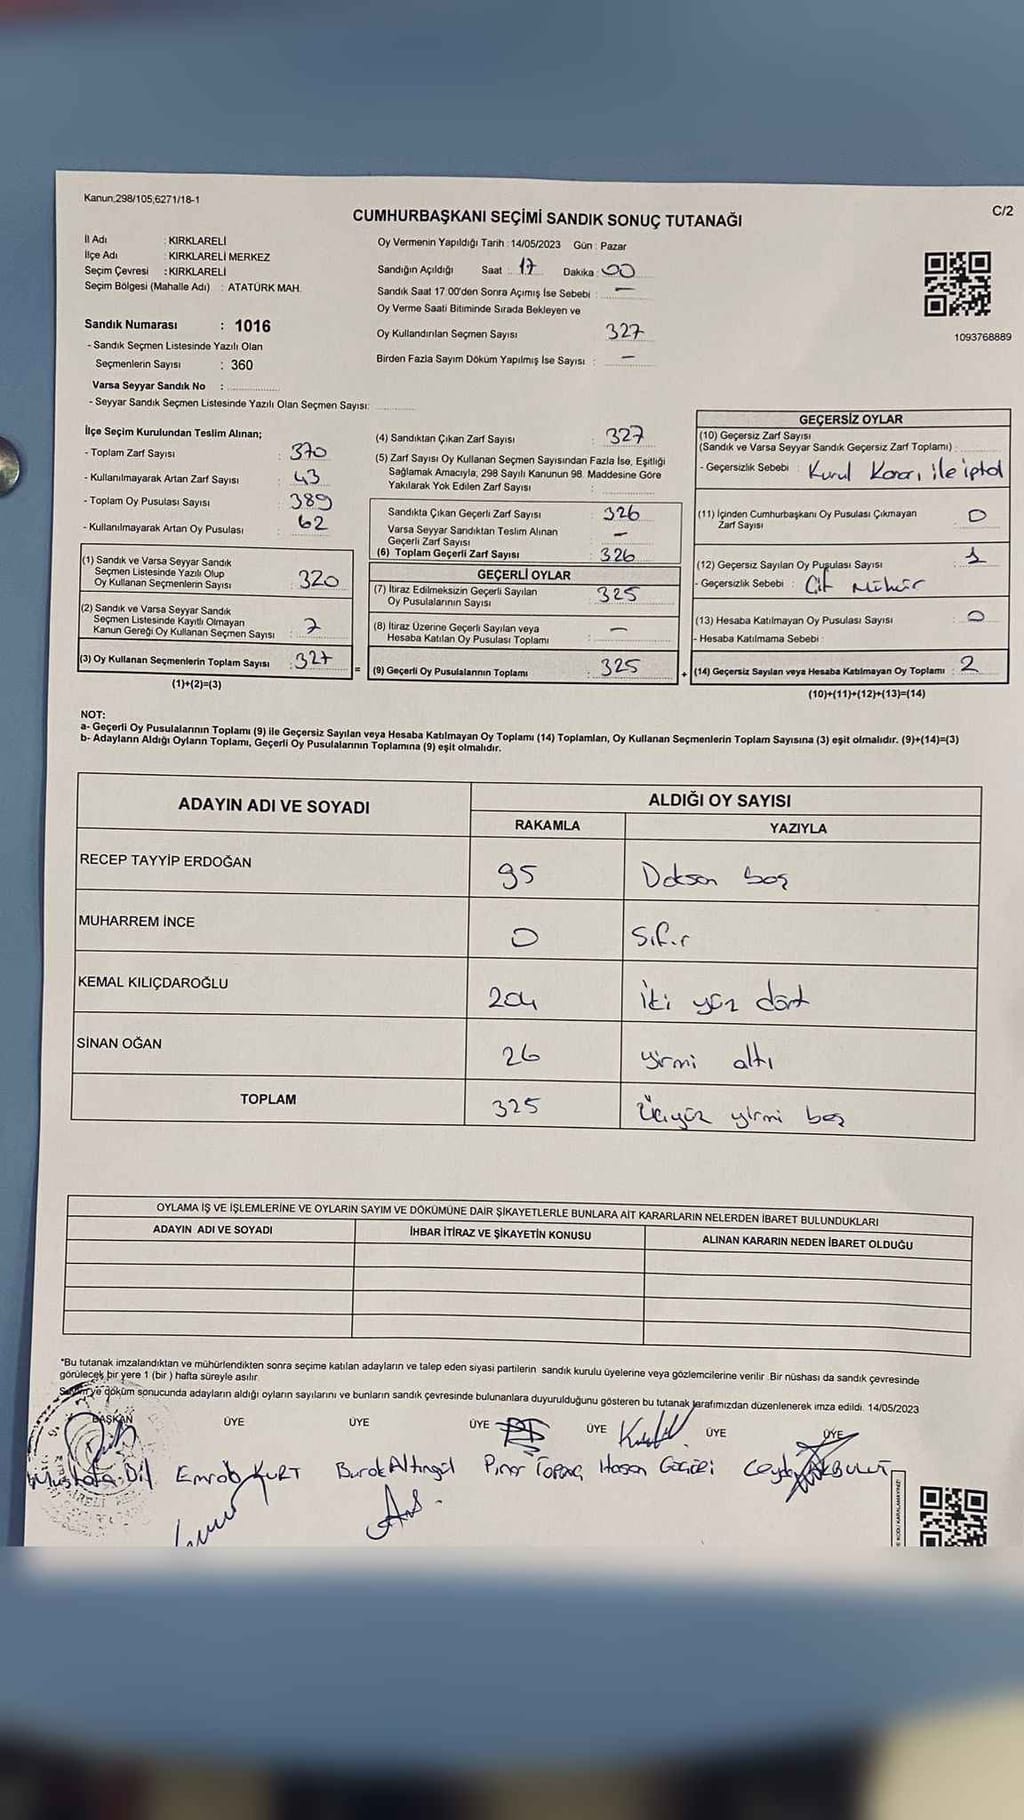 Kanun;298/105;6271/18-1
C/2
CUMHURBAŞKANI SEÇİMİ SANDIK SONUÇ TUTANAĞI
İl Adı : KIRKLARELİ
İlçe Adı : KIRKLARELİ MERKEZ
Seçim Çevresi : KIRKLARELİ
Seçim Bölgesi (Mahalle Adı) : ATATÜRK MAH.
Sandık Numarası : 1016
- Sandık Seçmen Listesinde Yazılı Olan
Seçmenlerin Sayısı : 360
Varsa Seyyar Sandık No :
- Seyyar Sandık Seçmen Listesinde Yazılı Olan Seçmen Sayısı:
Oy Vermenin Yapıldığı Tarih : 14/05/2023 Gün : Pazar
Sandığın Açıldığı Saat : 17 Dakika : 00
Sandık Saat 17:00'den Sonra Açılmış İse Sebebi : —
Oy Verme Saati Bitiminde Sırada Bekleyen ve
Oy Kullandırılan Seçmen Sayısı 327
Birden Fazla Sayım Döküm Yapılmış İse Sayısı : —
1093768889
İlçe Seçim Kurulundan Teslim Alınan;
- Toplam Zarf Sayısı : 370
- Kullanılmayarak Artan Zarf Sayısı : 43
- Toplam Oy Pusulası Sayısı : 389
- Kullanılmayarak Artan Oy Pusulası : 62
(1) Sandık ve Varsa Seyyar Sandık
Seçmen Listesinde Yazılı Olup
Oy Kullanan Seçmenlerin Sayısı : 320
(2) Sandık ve Varsa Seyyar Sandık
Seçmen Listesinde Kayıtlı Olmayan
Kanun Gereği Oy Kullanan Seçmen Sayısı : 7
(3) Oy Kullanan Seçmenlerin Toplam Sayısı : 327
(1)+(2)=(3)
=
(4) Sandıktan Çıkan Zarf Sayısı : 327
(5) Zarf Sayısı Oy Kullanan Seçmen Sayısından Fazla İse, Eşitliği
Sağlamak Amacıyla, 298 Sayılı Kanunun 98. Maddesine Göre
Yakılarak Yok Edilen Zarf Sayısı :
Sandıkta Çıkan Geçerli Zarf Sayısı : 326
Varsa Seyyar Sandıktan Teslim Alınan
Geçerli Zarf Sayısı : —
(6) Toplam Geçerli Zarf Sayısı : 326
GEÇERLİ OYLAR
(7) İtiraz Edilmeksizin Geçerli Sayılan
Oy Pusulalarının Sayısı : 325
(8) İtiraz Üzerine Geçerli Sayılan veya
Hesaba Katılan Oy Pusulası Toplamı : —
(9) Geçerli Oy Pusulalarının Toplamı : 325
+
GEÇERSİZ OYLAR
(10) Geçersiz Zarf Sayısı
(Sandık ve Varsa Seyyar Sandık Geçersiz Zarf Toplamı) :
- Geçersizlik Sebebi : Kurul Kararı ile iptal
(11) İçinden Cumhurbaşkanı Oy Pusulası Çıkmayan
Zarf Sayısı : 0
(12) Geçersiz Sayılan Oy Pusulası Sayısı : 1
- Geçersizlik Sebebi : Çift Mühür
(13) Hesaba Katılmayan Oy Pusulası Sayısı : 0
- Hesaba Katılmama Sebebi :
(14) Geçersiz Sayılan veya Hesaba Katılmayan Oy Toplamı : 2
(10)+(11)+(12)+(13)=(14)
NOT:
a- Geçerli Oy Pusulalarının Toplamı (9) ile Geçersiz Sayılan veya Hesaba Katılmayan Oy Toplamı (14) Toplamları, Oy Kullanan Seçmenlerin Toplam Sayısına (3) eşit olmalıdır. (9)+(14)=(3)
b- Adayların Aldığı Oyların Toplamı, Geçerli Oy Pusulalarının Toplamına (9) eşit olmalıdır.
ADAYIN ADI VE SOYADI ALDIĞI OY SAYISI
RAKAMLA YAZIYLA
RECEP TAYYİP ERDOĞAN 95 Doksan beş
MUHARREM İNCE 0 Sıfır
KEMAL KILIÇDAROĞLU 204 iki yüz dört
SİNAN OĞAN 26 yirmi altı
TOPLAM 325 Üçyüz yirmi beş
OYLAMA İŞ VE İŞLEMLERİNE VE OYLARIN SAYIM VE DÖKÜMÜNE DAİR ŞİKAYETLERLE BUNLARA AİT KARARLARIN NELERDEN İBARET BULUNDUKLARI
ADAYIN ADI VE SOYADI İHBAR İTİRAZ VE ŞİKAYETİN KONUSU ALINAN KARARIN NEDEN İBARET OLDUĞU
*Bu tutanak imzalandıktan ve mühürlendikten sonra seçime katılan adayların ve talep eden siyasi partilerin sandık kurulu üyelerine veya gözlemcilerine verilir. Bir nüshası da sandık çevresinde
görülecek bir yere 1 (bir ) hafta süreyle asılır.
Sayım ve döküm sonucunda adayların aldığı oyların sayılarını ve bunların sandık çevresinde bulunanlara duyurulduğunu gösteren bu tutanak tarafımızdan düzenlenerek imza edildi. 14/05/2023
BAŞKAN ÜYE ÜYE ÜYE ÜYE ÜYE ÜYE
Mustafa Dil Emrah KURT Burak Altıngül Pınar Hasan Ceyda AKBULUT